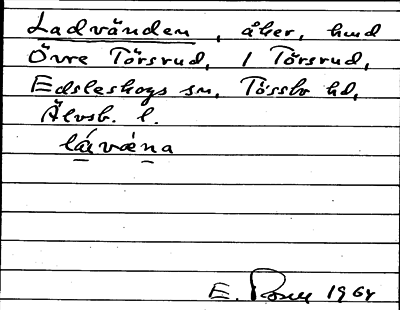 Ladvänden, åker, hmd
Övre Törsrud, 1 Törsrud,
Edsleskogs sn, Tössbo hd,
Älvsb. l.
lávæna
E. 1964